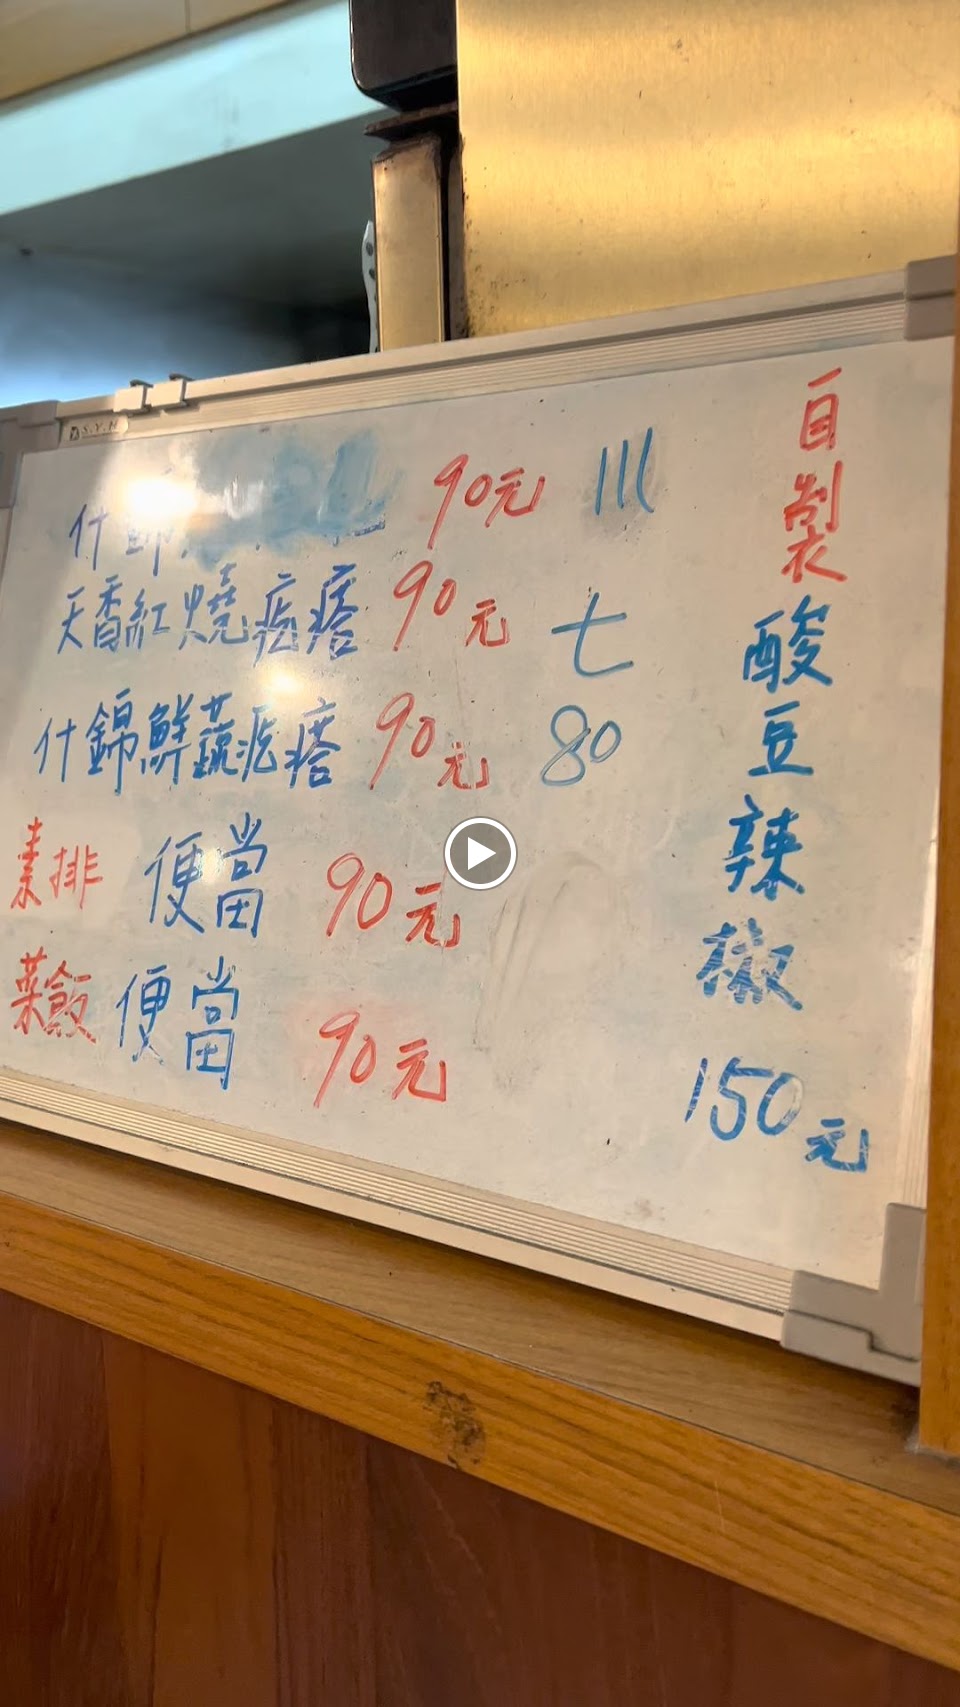 S.Y.H
什錦 90元 川
天香紅燒疙瘩 90元 七
什錦鮮蔬疙瘩 90元 80
素排便當 90元
菜飯便當 90元
自製酸豆辣椒 150元